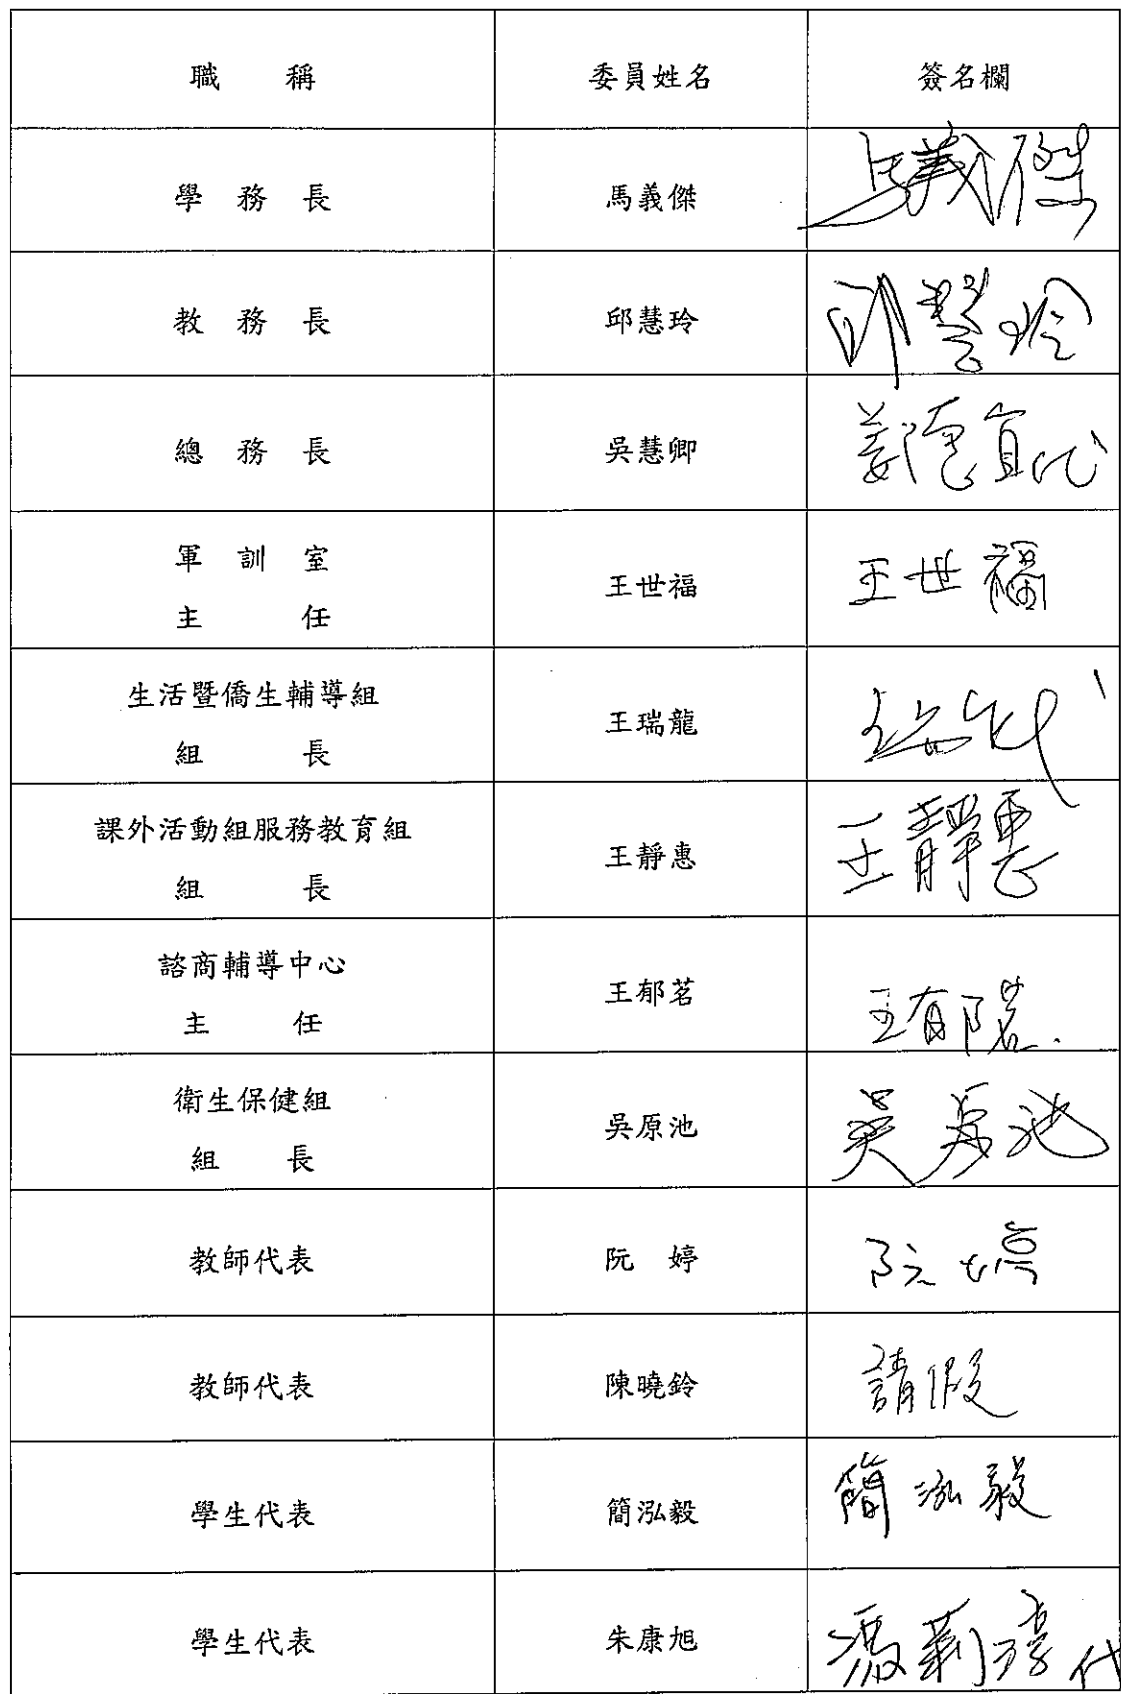 職 稱 委員姓名 簽名欄
學 務 長 馬義傑 馬義傑
教 務 長 邱慧玲 邱慧玲
總 務 長 吳慧卿
軍 訓 室
主 任 王世福 王世福
生活暨僑生輔導組
組 長 王瑞龍
課外活動組服務教育組
組 長 王靜惠 王靜惠
諮商輔導中心
主 任 王郁茗 王郁茗
衛生保健組
組 長 吳原池 吳原池
教師代表 阮 婷 阮婷
教師代表 陳曉鈴 請假
學生代表 簡泓毅 簡泓毅
學生代表 朱康旭 代